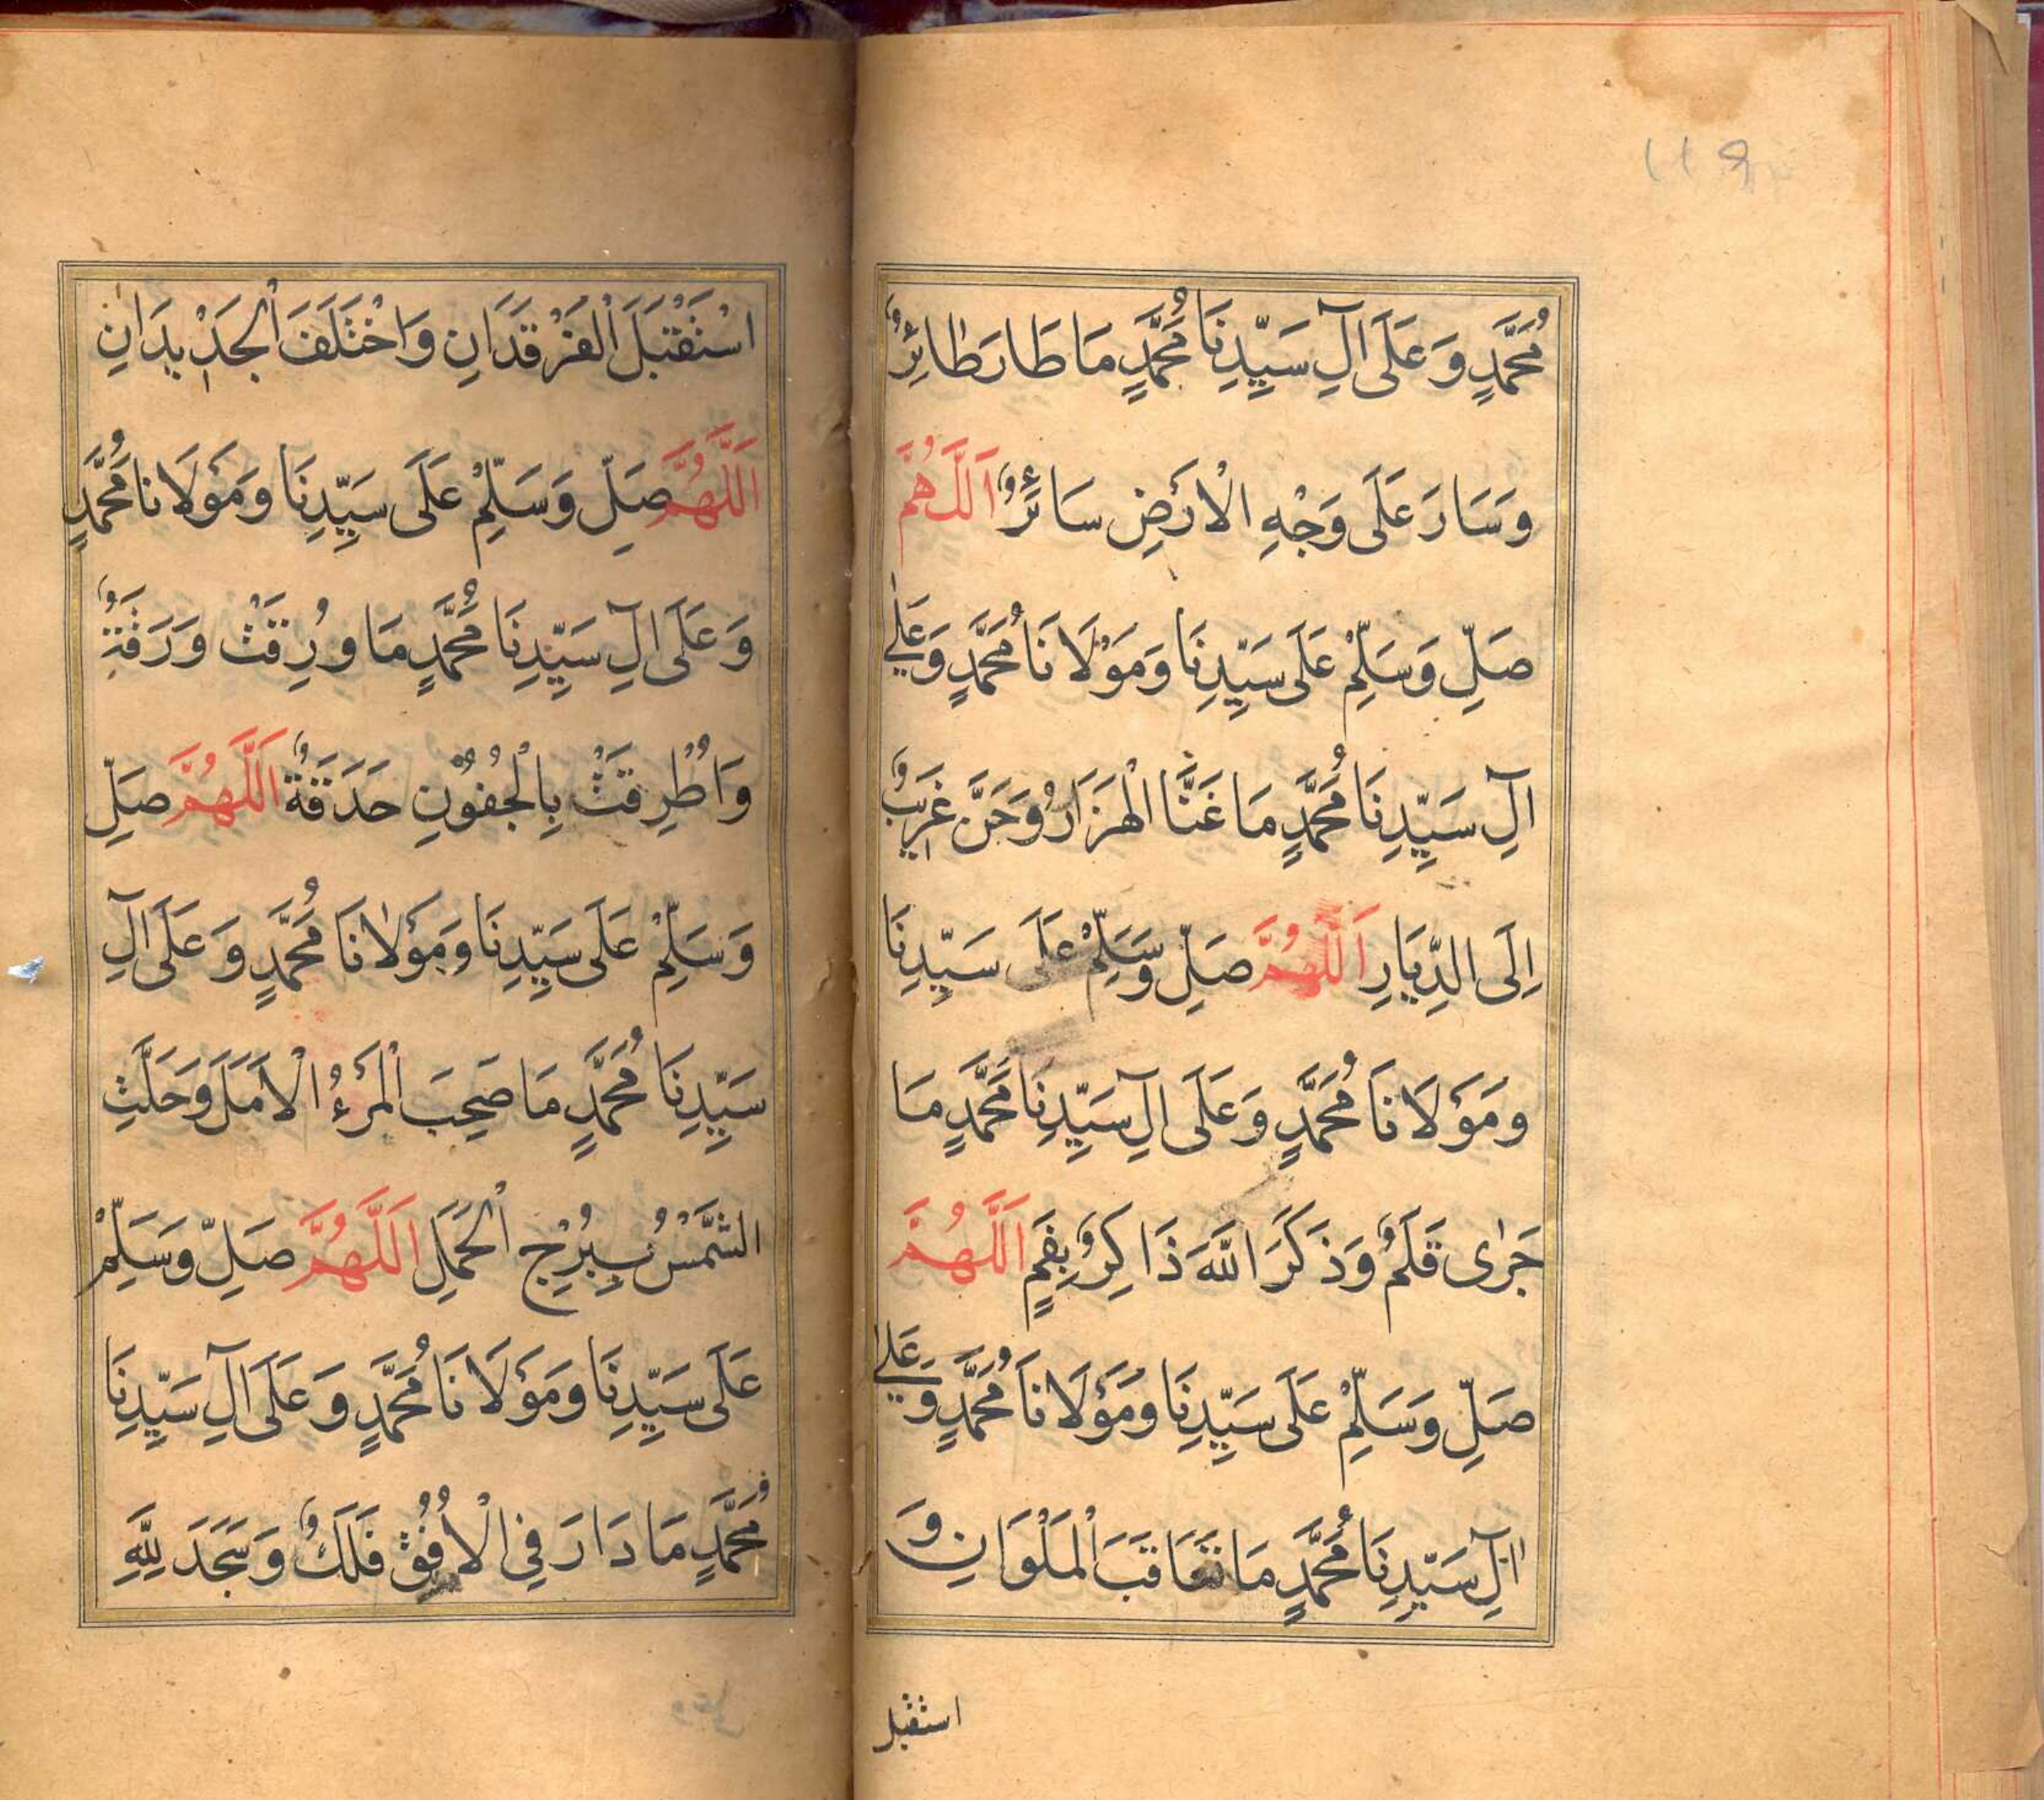 ١١٩
مُحَمَّدٍ وَعَلَى اٰلِ سَيِّدِنَا مُحَمَّدٍ مَا طَارَ طَائِرٌ
وَسَارَ عَلَى وَجْهِ الْاَرْضِ سَائِرٌ اَللَّهُمَّ
صَلِّ وَسَلِّمْ عَلَى سَيِّدِنَا وَمَوْلَانَا مُحَمَّدٍ وَعَلٰى
اٰلِ سَيِّدِنَا مُحَمَّدٍ مَا غَنَّا الْهَزَارُ وَحَنَّ غَرِيبٌ
اِلَى الدِّيَارِ اَللَّهُمَّ صَلِّ وَسَلِّمْ عَلَى سَيِّدِنَا
وَمَوْلَانَا مُحَمَّدٍ وَعَلَى اٰلِ سَيِّدِنَا مُحَمَّدٍ مَا
جَرٰى قَلَمٌ وَذَكَرَ اللَّهَ ذَاكِرٌ بِفَمٍ اَللَّهُمَّ
صَلِّ وَسَلِّمْ عَلَى سَيِّدِنَا وَمَوْلَانَا مُحَمَّدٍ وَعَلٰى
اٰلِ سَيِّدِنَا مُحَمَّدٍ مَا تَعَاقَبَ الْمَلَوَانِ وَ
استقبل
اسْتَقْبَلَ الْفَرْقَدَانِ وَاخْتَلَفَ الْجَدِيدَانِ
اَللَّهُمَّ صَلِّ وَسَلِّمْ عَلَى سَيِّدِنَا وَمَوْلَانَا مُحَمَّدٍ
وَعَلَى اٰلِ سَيِّدِنَا مُحَمَّدٍ مَا وُرِقَتْ وَرَقَةٌ
وَاُطْرِقَتْ بِالْجُفُوْنِ حَدَقَةٌ اَللَّهُمَّ صَلِّ
وَسَلِّمْ عَلَى سَيِّدِنَا وَمَوْلَانَا مُحَمَّدٍ وَعَلَى اٰلِ
سَيِّدِنَا مُحَمَّدٍ مَا صَحِبَ الْمَرْءُ الْاَمَلَ وَحَلَّتِ
الشَّمْسُ بِبُرْجِ الْحَمَلِ اَللَّهُمَّ صَلِّ وَسَلِّمْ
عَلَى سَيِّدِنَا وَمَوْلَانَا مُحَمَّدٍ وَعَلَى اٰلِ سَيِّدِنَا
مُحَمَّدٍ مَا دَارَ فِي الْاُفُقِ فَلَكٌ وَسَجَدَ لِلّٰهِ